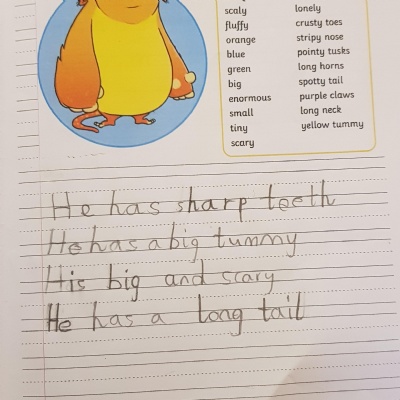 scaly
fluffy
orange
blue
green
big
enormous
small
tiny
scary
lonely
crusty toes
stripy nose
pointy tusks
long horns
spotty tail
purple claws
long neck
yellow tummy
He has sharp teeth
He has a big tummy
His big and scary
He has a long tail